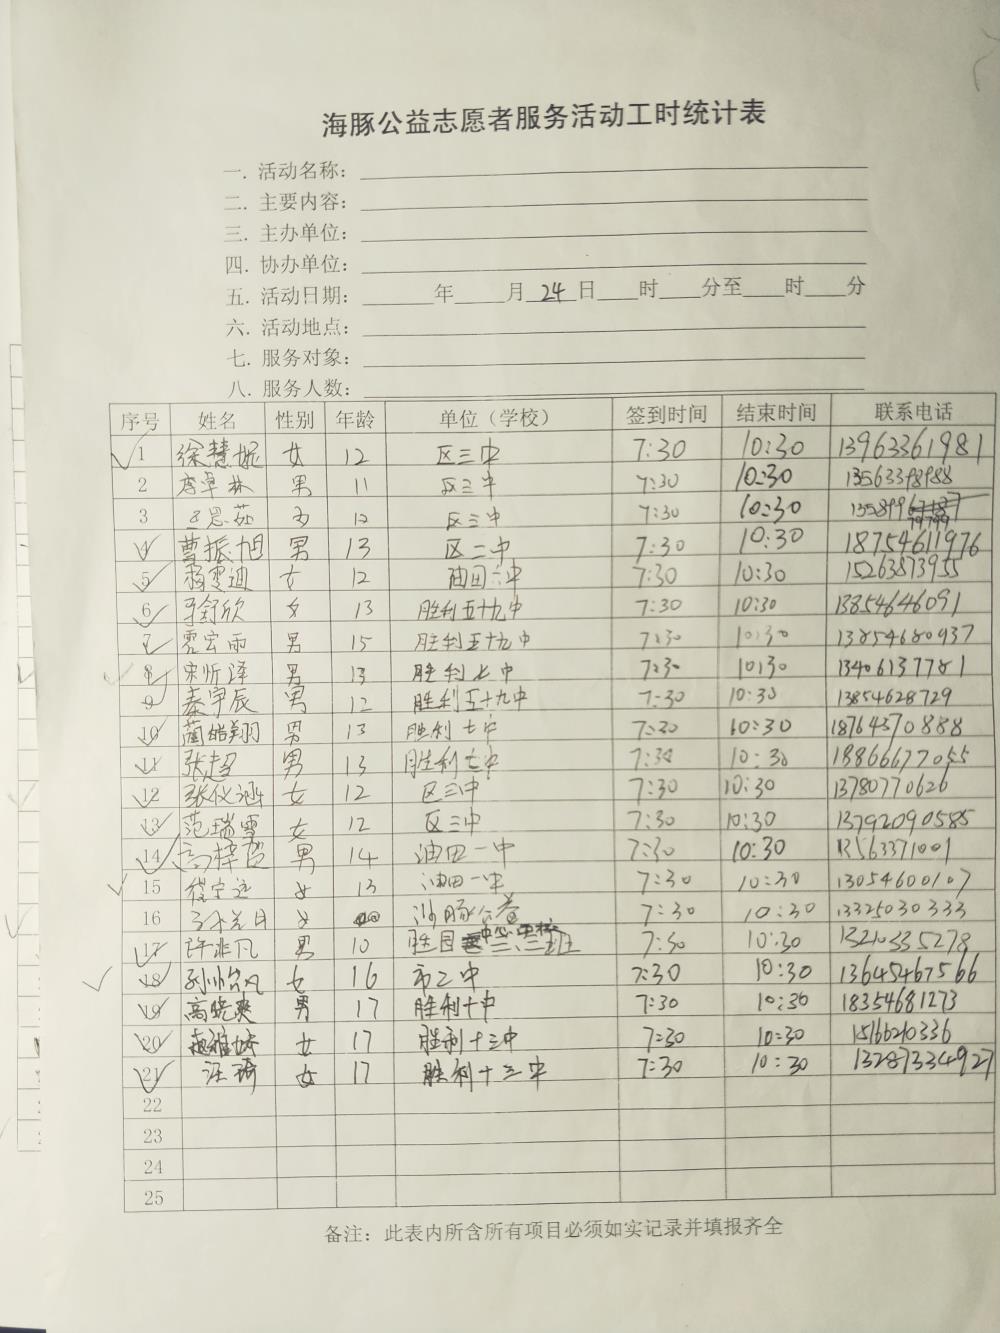 海豚公益志愿者服务活动工时统计表
一. 活动名称:
二. 主要内容:
三. 主办单位:
四. 协办单位:
五. 活动日期: 年 月 24 日 时 分至 时 分
六. 活动地点:
七. 服务对象:
八. 服务人数:
序号 姓名 性别 年龄 单位（学校） 签到时间 结束时间 联系电话
1 徐慧妮 女 12 区三中 7:30 10:30 13963361981
2 男 11 区三中 7:30 10:30
3 12 区三中 7:30 10:30
4 曹振旭 男 13 区二中 7:30 10:30 18754611976
5 女 12 油田六中 7:30 10:30 15263873955
6 于舒欣 女 13 胜利五十九中 7:30 10:30 13854646091
7 男 15 胜利五十九中 7:30 10:30 13854680937
8 宋忻泽 男 13 胜利七中 7:30 10:30 13406137781
9 秦宇辰 男 12 胜利五十九中 7:30 10:30 13854628729
10 蔺皓翔 男 13 胜利七中 7:30 10:30 18764570888
11 张超 男 13 胜利七中 7:30 10:30 13866677055
12 张仪涵 女 12 区三中 7:30 10:30 13780770626
13 范瑞雪 女 12 区三中 7:30 10:30 13792090585
14 高梓哲 男 14 油田一中 7:30 10:30 13563371001
15 女 13 油田一中 7:30 10:30 13054600107
16 女 海豚公益 7:30 10:30 13325030333
17 许非凡 男 10 胜园 7:30 10:30 13210335278
18 女 16 市二中 7:30 10:30 13645467566
19 高晓爽 男 17 胜利十中 7:30 10:30 18354681273
20 女 17 胜利十三中 7:30 10:30 15166210336
21 汪琦 女 17 胜利十三中 7:30 10:30 13287334927
22
23
24
25
备注: 此表内所含所有项目必须如实记录并填报齐全